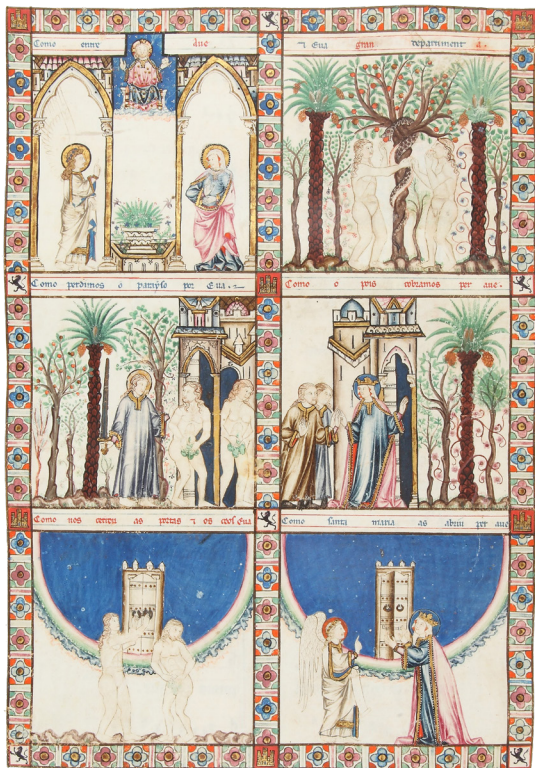 Como entre Aue
⁊ Eua gran departiment á.
Como perdimos o parayso per Eua.
Como o pois cobramos per aue.
Como nos cerrou as portas ⁊ os ceos Eua
Como santa maria as abriu per aue